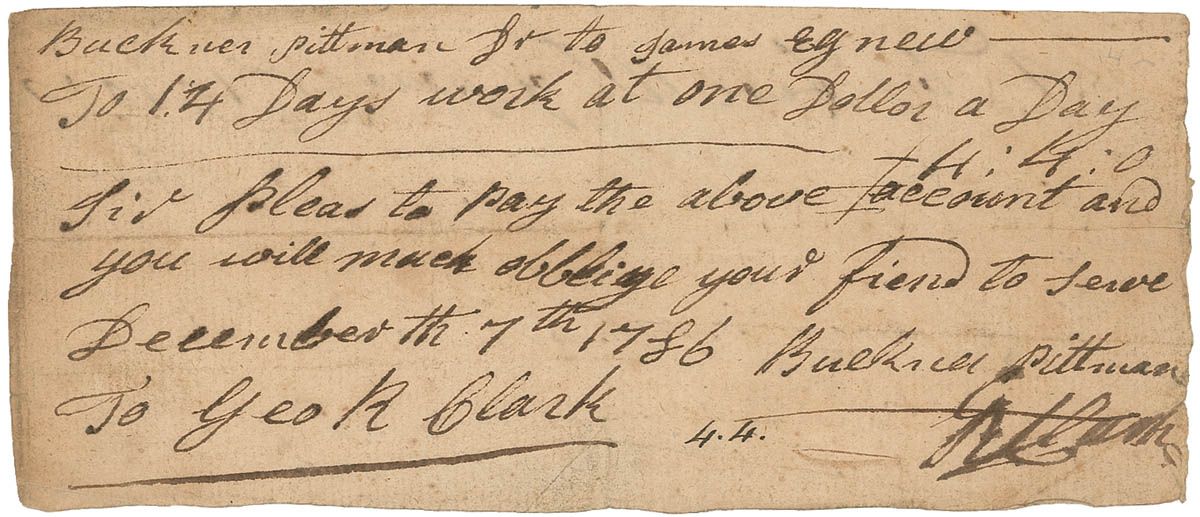 Buckner pittman Dr to James Egnew
To 14 Days work at one Dollor a Day
£4:4:0
Sir pleas to pay the above account and
you will much obblige your fiend to serve
December th 7th 1786 Buckner pittman
To Geo R Clark
4.4.
GR Clark